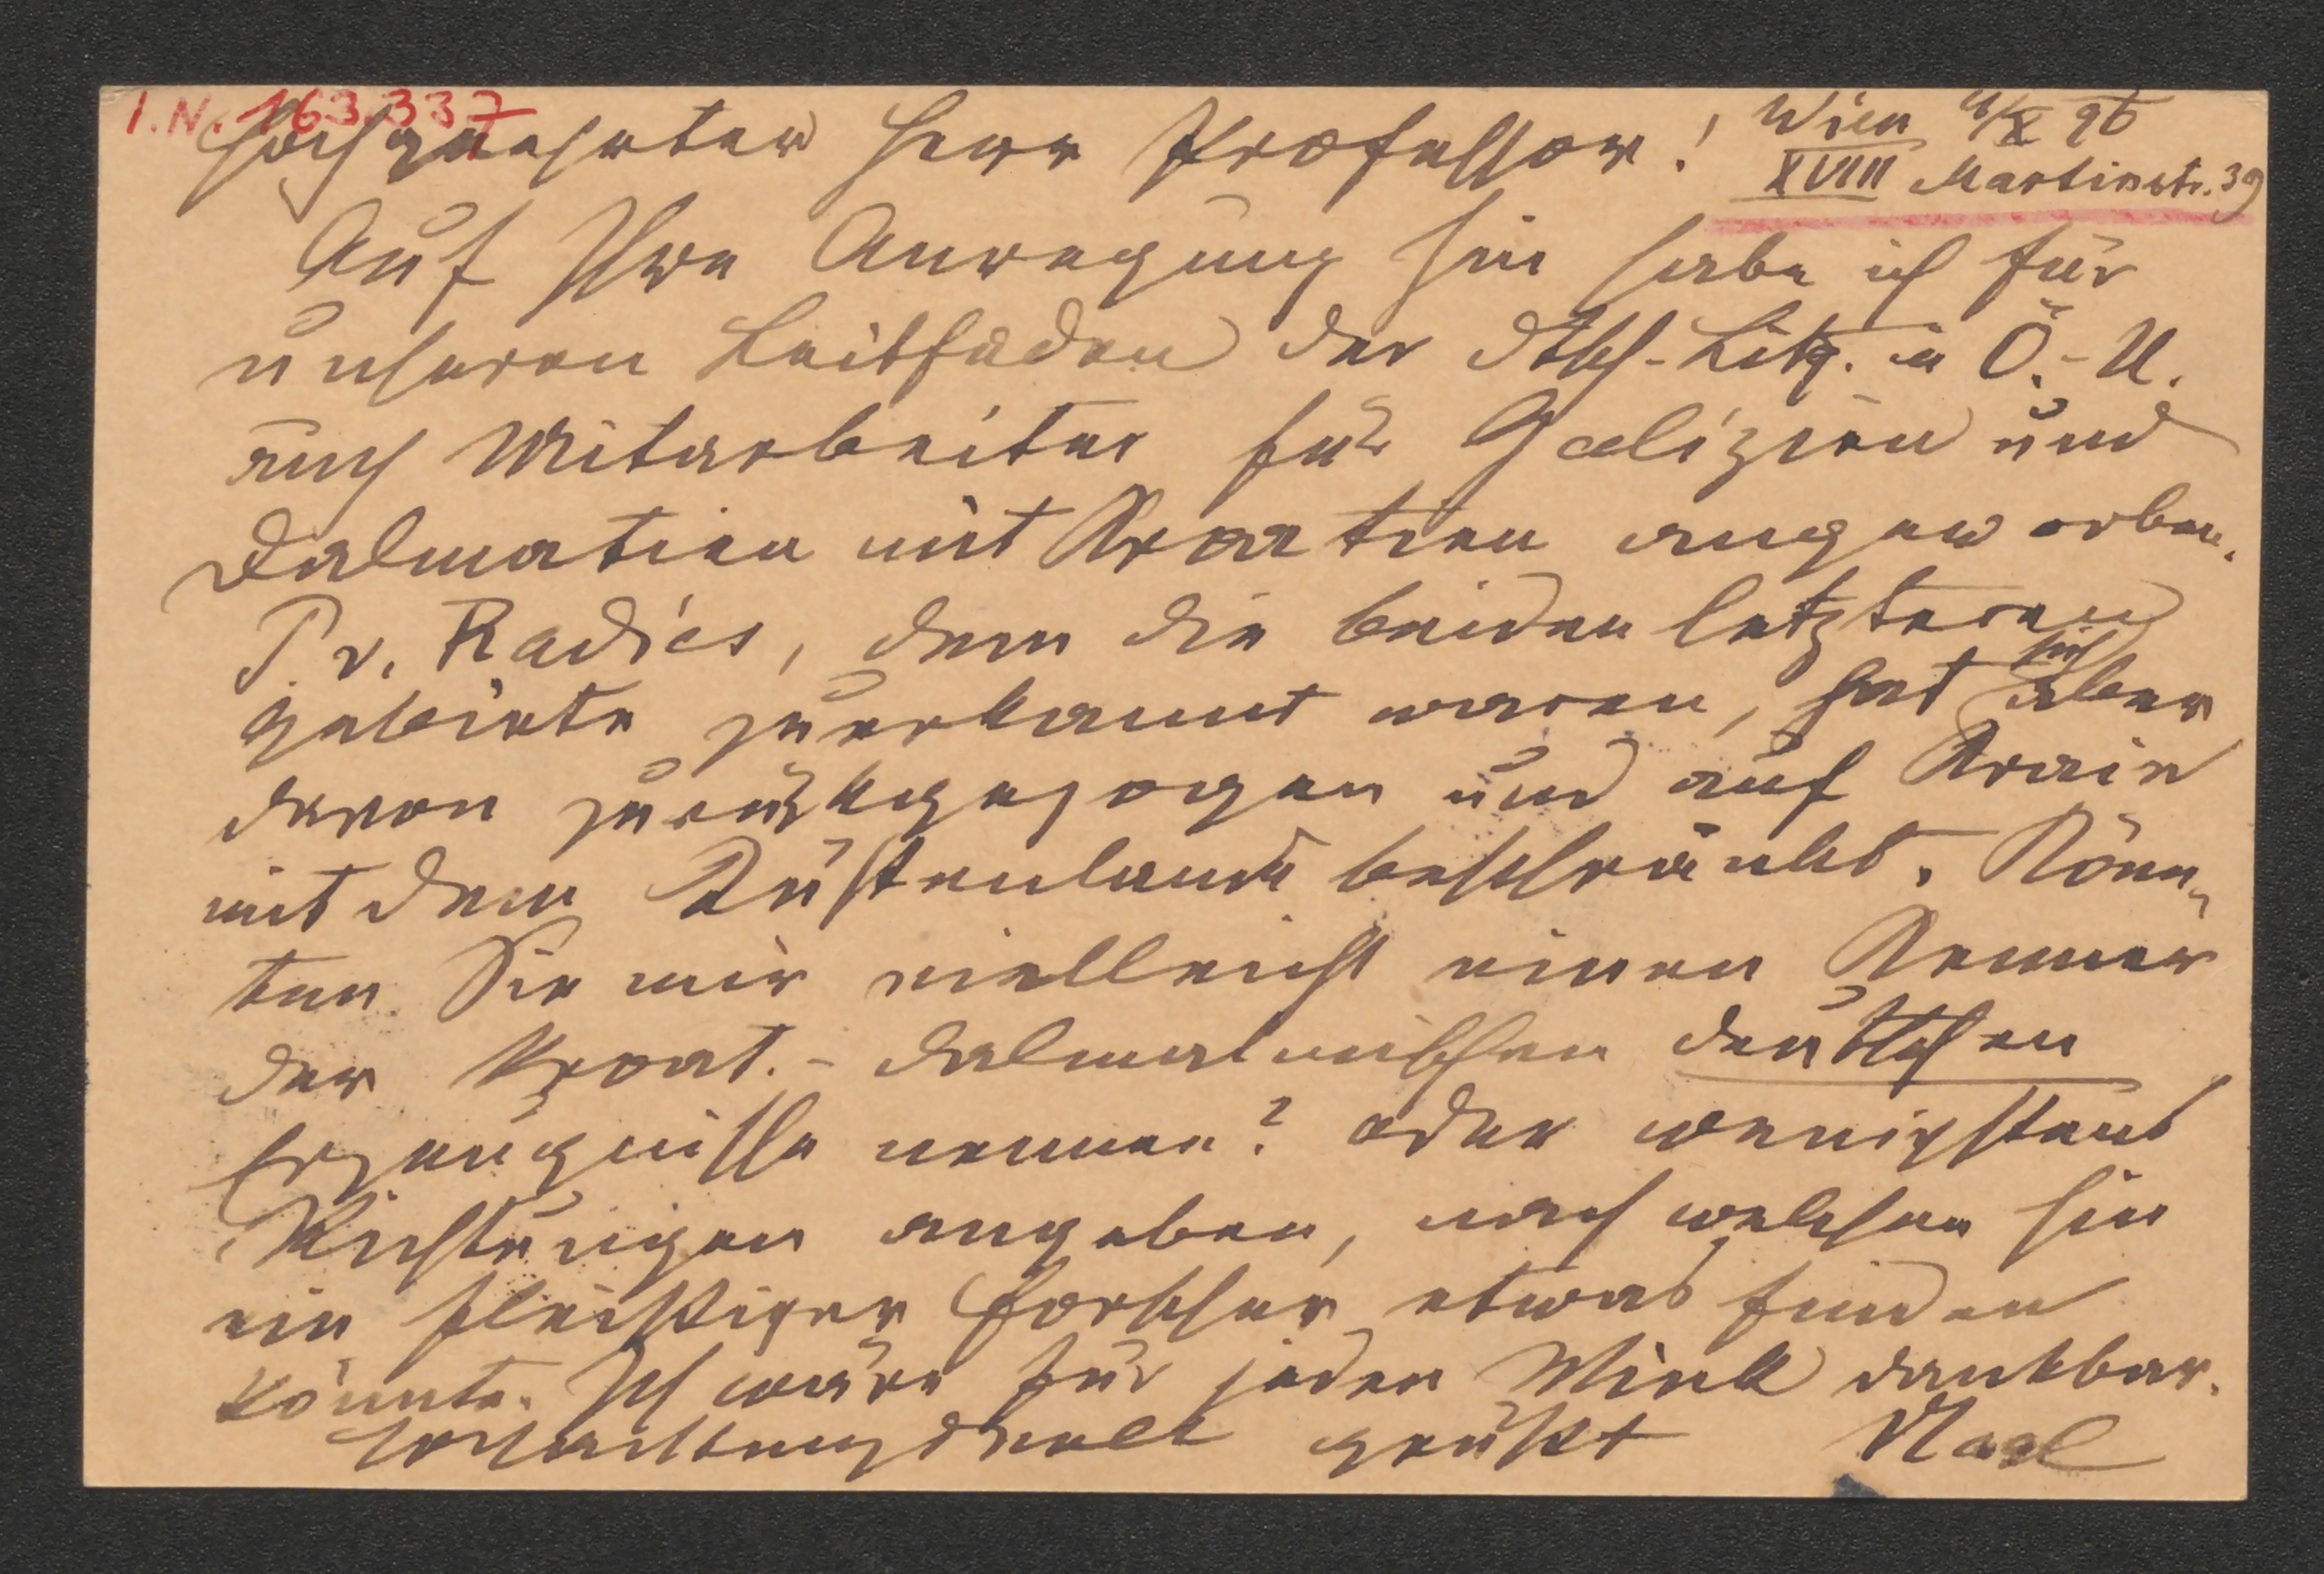 I.N. 163.337
Hochgeehrter Herr Professor! Wien 4/X 96
XVIII Martinstr. 39
Auf Ihre Anregung hin habe ich für
unseren Leitfaden der dtsch-Litg. in Ö.-U.
auch Mitarbeiter für Galizien und
Dalmatien mit Kroatien angeworben.
P. v. Radics, dem die beiden letzteren
Gebiete zuerkannt waren, hat sich aber
davon zurückgezogen und auf Krain
mit dem Küstenlande beschränkt. Könn-
ten Sie mir vielleicht einen Kenner
der kroat.-dalmatinischen deutschen
Erzeugnisse nennen? oder wenigstens
Richtungen angeben, nach welchen hin
ein fleißiger Forscher etwas finden
könnte. Ich wäre für jeden Wink dankbar.
Hochachtungsvoll grüßt Nagl